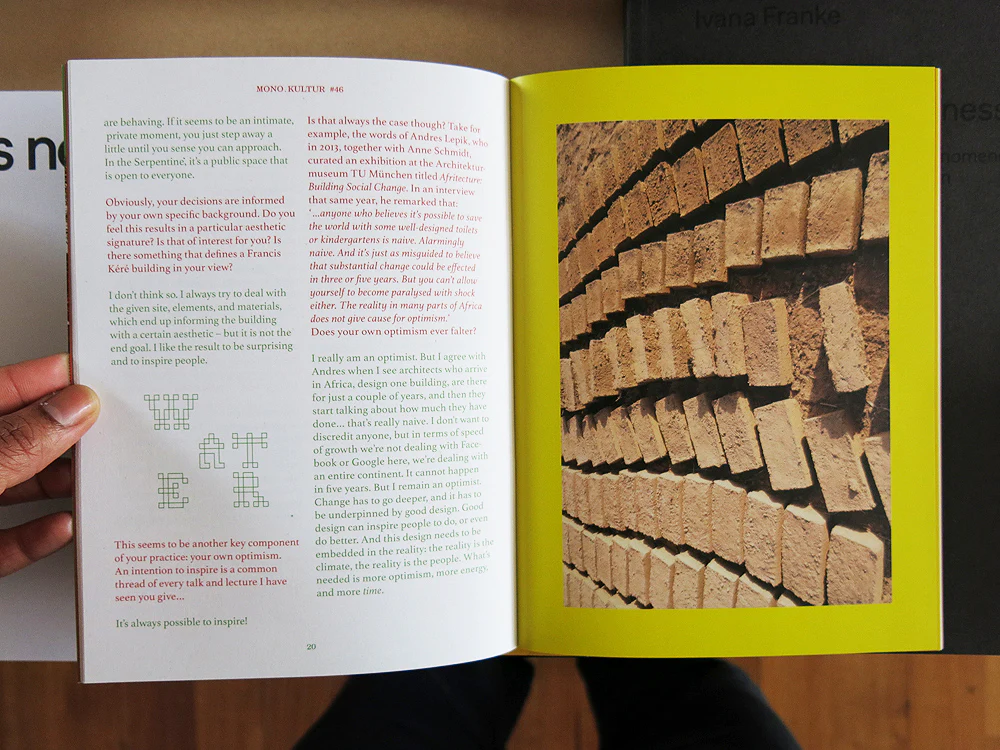 Ivana Franke
s no
ness
nomen
MONO.KULTUR #46
are behaving. If it seems to be an intimate,
private moment, you just step away a
little until you sense you can approach.
In the Serpentine, it's a public space that
is open to everyone.
Obviously, your decisions are informed
by your own specific background. Do you
feel this results in a particular aesthetic
signature? Is that of interest for you? Is
there something that defines a Francis
Kéré building in your view?
I don't think so. I always try to deal with
the given site, elements, and materials,
which end up informing the building
with a certain aesthetic – but it is not the
end goal. I like the result to be surprising
and to inspire people.
W
AT
ER
This seems to be another key component
of your practice: your own optimism.
An intention to inspire is a common
thread of every talk and lecture I have
seen you give...
It's always possible to inspire!
Is that always the case though? Take for
example, the words of Andres Lepik, who
in 2013, together with Anne Schmidt,
curated an exhibition at the Architektur-
museum TU München titled Afritecture:
Building Social Change. In an interview
that same year, he remarked that:
"...anyone who believes it's possible to save
the world with some well-designed toilets
or kindergartens is naive. Alarmingly
naive. And it's just as misguided to believe
that substantial change could be effected
in three or five years. But you can't allow
yourself to become paralysed with shock
either. The reality in many parts of Africa
does not give cause for optimism."
Does your own optimism ever falter?
I really am an optimist. But I agree with
Andres when I see architects who arrive
in Africa, design one building, are there
for just a couple of years, and then they
start talking about how much they have
done... that's really naive. I don't want to
discredit anyone, but in terms of speed
of growth we're not dealing with Face-
book or Google here, we're dealing with
an entire continent. It cannot happen
in five years. But I remain an optimist.
Change has to go deeper, and it has to
be underpinned by good design. Good
design can inspire people to do, or even
do better. And this design needs to be
embedded in the reality: the reality is the
climate, the reality is the people. What's
needed is more optimism, more energy,
and more time.
20